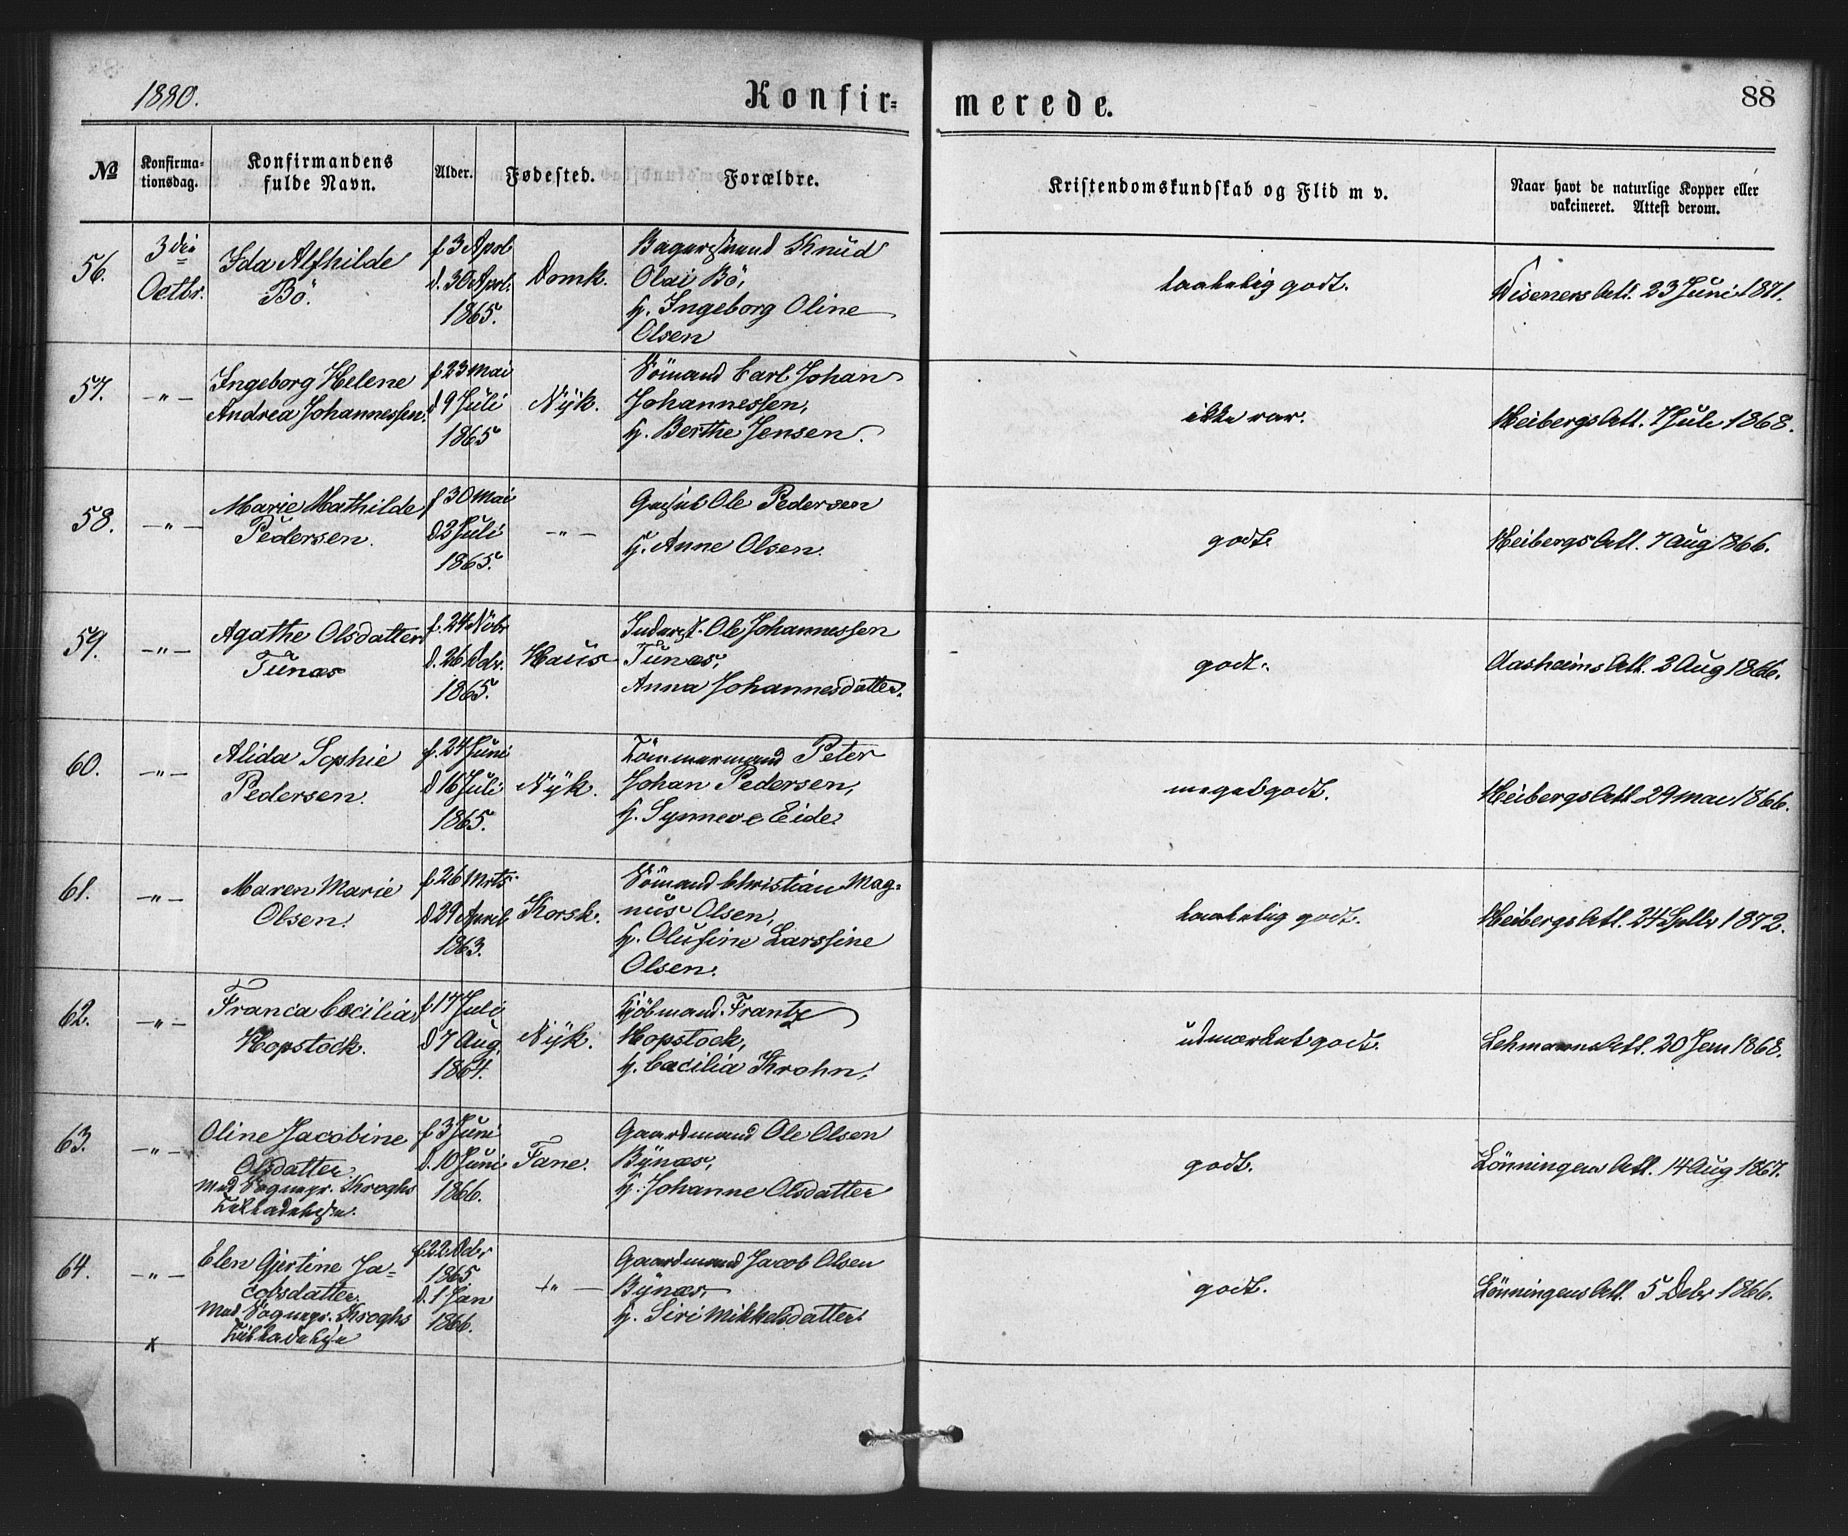 1880.
Konfir=
merede.
88
No
Konfirma-
tionsdag.
Konfirmandens
fulde Navn.
Alder.
Fødested.
Forældre.
Kristendomskundskab og Flid m v.
Naar havt de naturlige Kopper eller
vakcineret. Attest derom.
56.
3die
Octbr.
Ida Alfhilde
Bö.
f. 3 April
d. 30 April
1865.
Domk.
Knud
Olai Bö,
H. Ingeborg Oline
Olsen
taalelig godt.
Wiseners Att. 23 Juni 1871.
57.
-"-
Ingeborg Helene
Andrea Johannessen.
f. 23 Mai
d 9 Juli
1865
Nÿk.
Sömand Carl Johan
Johannessen,
H. Berthe Jensen.
ikke rar.
Heibergs Att. 7 Juli 1868.
58.
-"-
Marie Mathilde
Pedersen.
f 30 Mai
d 2 Juli
1865.
-"-
Ole Pedersen
H. Anne Olsen.
godt.
Heibergs Att. 7 Aug 1866.
59.
-"-
Agathe Olsdatter
Tunæs
f. 24 Növbr
d. 26 Dbr.
1865.
Haus
Inderst. Ole Johannessen
Tunæs,
Anna Johannesdatter.
godt.
Aasheims Att. 2 Aug 1866.
60.
-"-
Alida Sophie
Pedersen.
f. 24 Juni
d 16 Juli
1865.
Nÿk.
Tömmermand Peter
Johan Pedersen,
H. Synneve Eide.
meget godt.
Heibergs Att 29 Mai 1866.
61.
-"-
Maren Marie
Olsen.
f. 26 Mrts
d 29 April
1863.
Korsk.
Sömand Christian Mag=
nus Olsen,
H. Olufine Larsine
Olsen.
taalelig godt.
Heibergs Att. 24 Septbr 1872.
62.
-"-
Franca Cecilia
Hopstock.
f. 17 Juli
d 7 Aug.
1864.
Nÿk.
Kjöbmand. Frantz
Hopstock,
H. Cæcilia Krohn.
udmærket godt.
Lehmanns Att. 20 Jan 1868.
63.
-"-
Oline Jacobine
Olsdatter
med Sognepr. Kroghs
Tilladelse.
f. 3 Juni
d. 10 Juni
1866.
Fane.
Gaardmand Ole Olsen
Bÿnæs,
H. Johanne Olsdatter
godt.
Lönningens Att. 14 Aug 1867.
64.
-"-
Elen Gjertine Ja=
cobsdatter
Med Sognepr. Kroghs
Tilladelse
x
f. 22 Dbr
1865
d. 1 Jan
1866.
-"-
Gaardmand Jacob Olsen
Bÿnæs
H. Siri Mikkelsdatter
godt.
Lönningens Att. 5 Debr 1866.